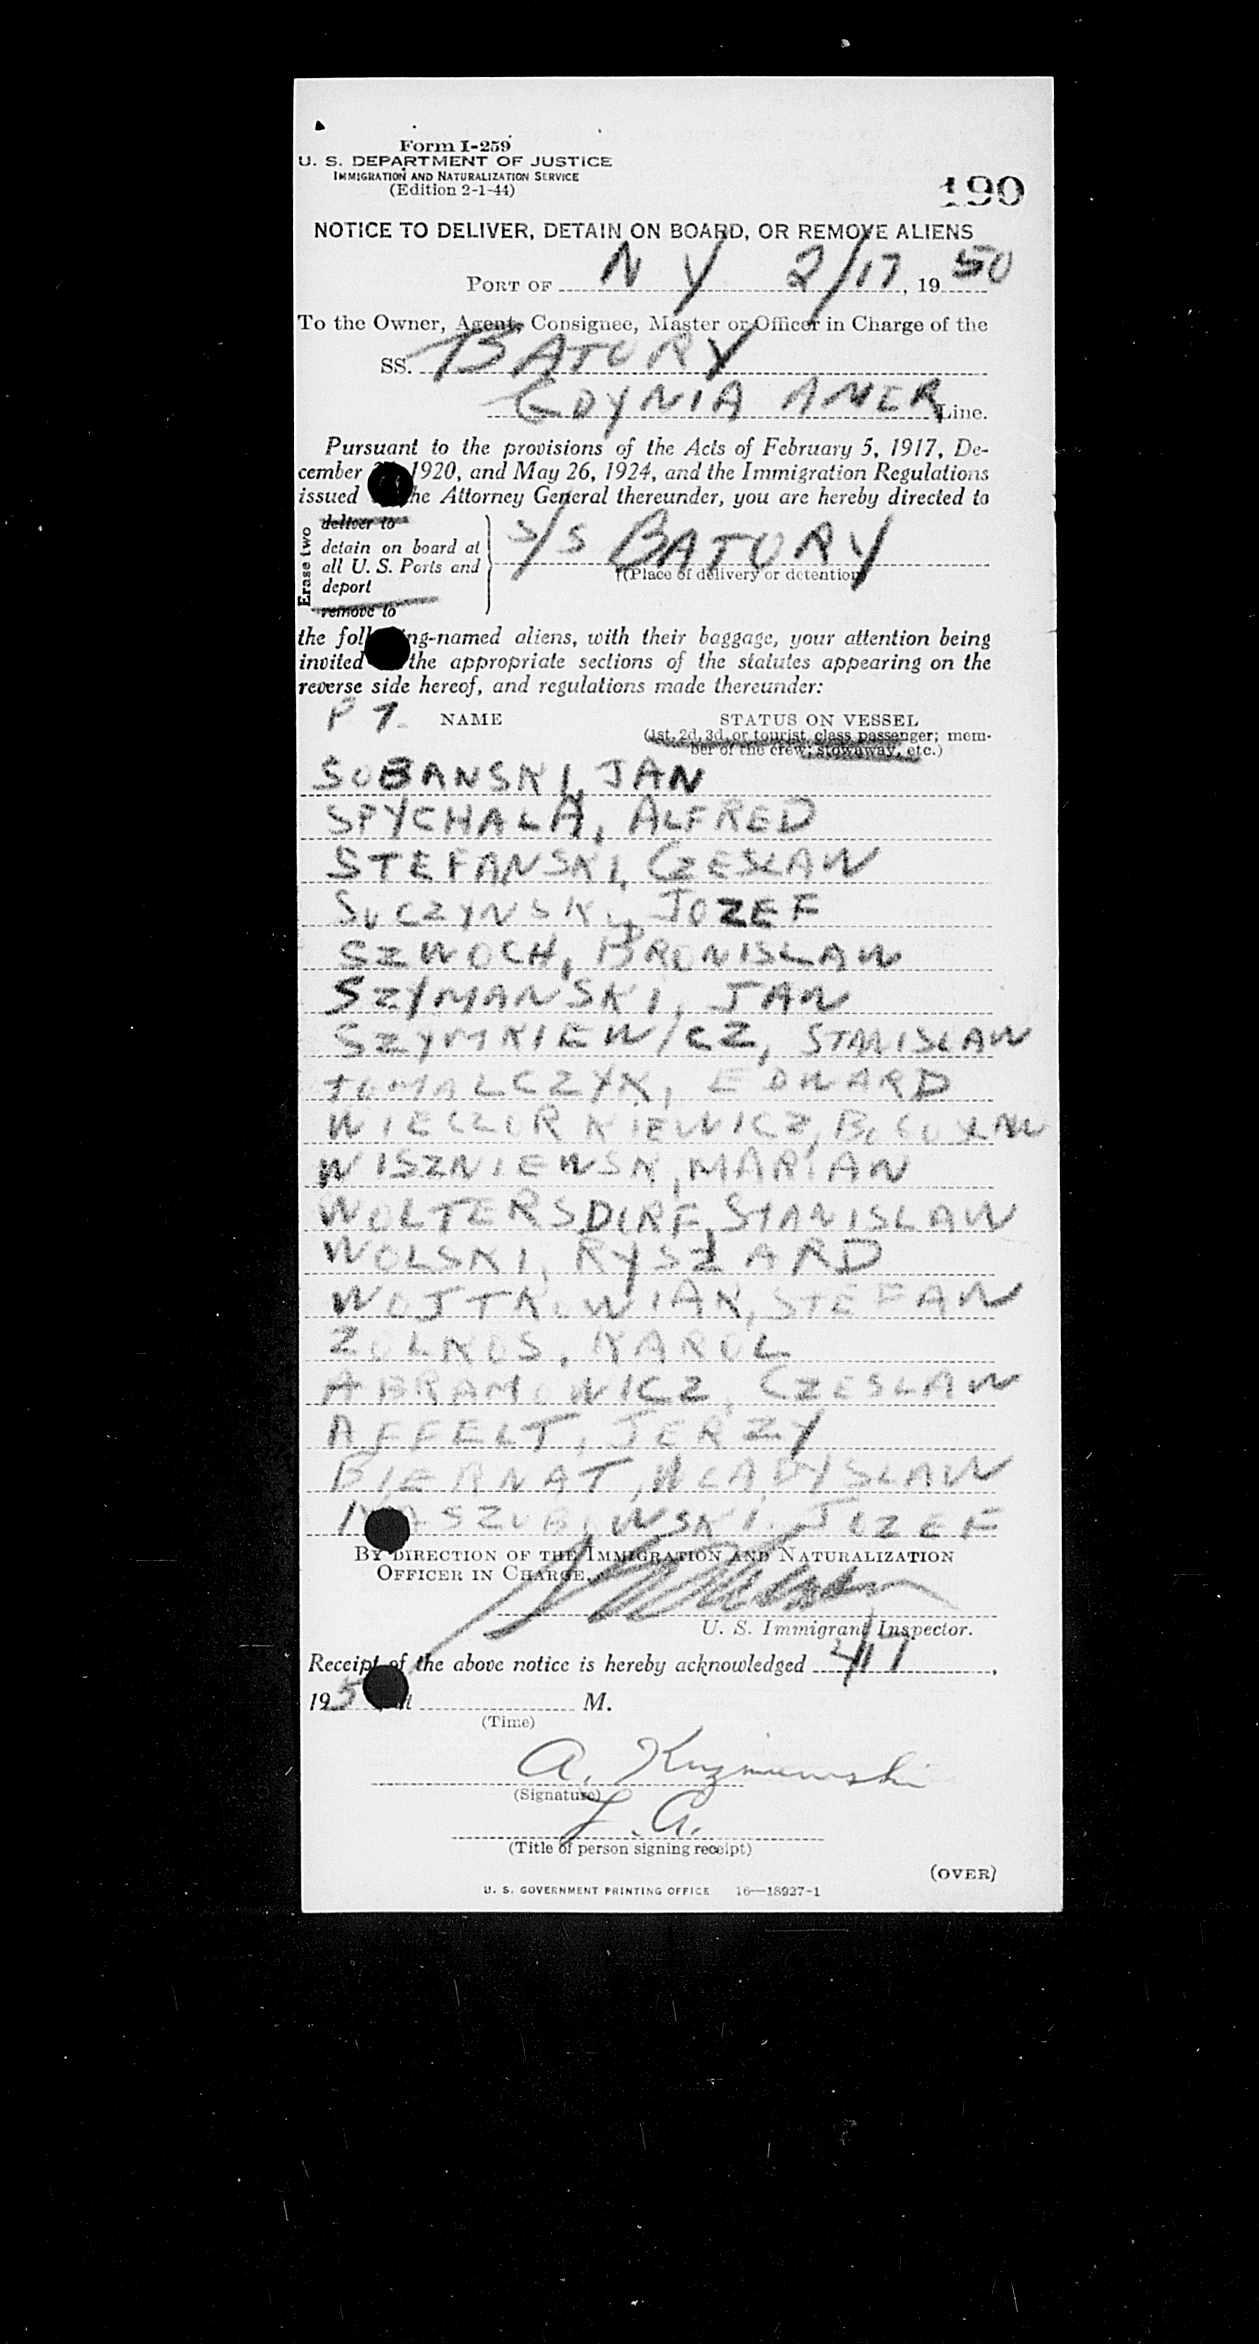 Form I-259
U. S. DEPARTMENT OF JUSTICE
IMMIGRATION AND NATURALIZATION SERVICE
(Edition 2-1-44)
190
NOTICE TO DELIVER, DETAIN ON BOARD, OR REMOVE ALIENS
PORT OF N Y 2/17, 19 50
To the Owner, Agent, Consignee, Master or Officer in Charge of the
SS. BATORY
GDYNIA AMER Line.
Pursuant to the provisions of the Acts of February 5, 1917, De-
cember 1920, and May 26, 1924, and the Immigration Regulations
issued the Attorney General thereunder, you are hereby directed to
Erase two
deliver to
detain on board at
all U. S. Ports and
deport
remove to
S/S BATORY
(Place of delivery or detention)
the following-named aliens, with their baggage, your attention being
invited the appropriate sections of the statutes appearing on the
reverse side hereof, and regulations made thereunder:
P 7. NAME STATUS ON VESSEL
(1st, 2d, 3d, or tourist class passenger; mem-
ber of the crew; stowaway, etc.)
SOBANSKI, JAN
SPYCHALA, ALFRED
STEFANSKI, CZESLAW
SUCZYNSKI, JOZEF
SZWOCH, BRONISLAW
SZYMANSKI, JAN
SZYMKIEWICZ, STANISLAW
TOMALCZYK, EDWARD
WIECZORKIEWICZ,
WISZNIEWSK, MARIAN
WOLTERSDORF, STANISLAW
WOLSKI, RYSZARD
WOJTKOWIAK, STEFAN
ZOLKOS, KAROL
ABRAMOWICZ, CZESLAW
AFFELT, JERZY
BIERNAT, WLADYSLAW
KASZUBOWSKI, JOZEF
BY DIRECTION OF THE IMMIGRATION AND NATURALIZATION
OFFICER IN CHARGE.
U. S. Immigrant Inspector.
Receipt of the above notice is hereby acknowledged 4/17,
195 at M.
(Time)
A. Kuzniewski
(Signature)
L. A.
(Title of person signing receipt)
(OVER)
U. S. GOVERNMENT PRINTING OFFICE 16—18927-1